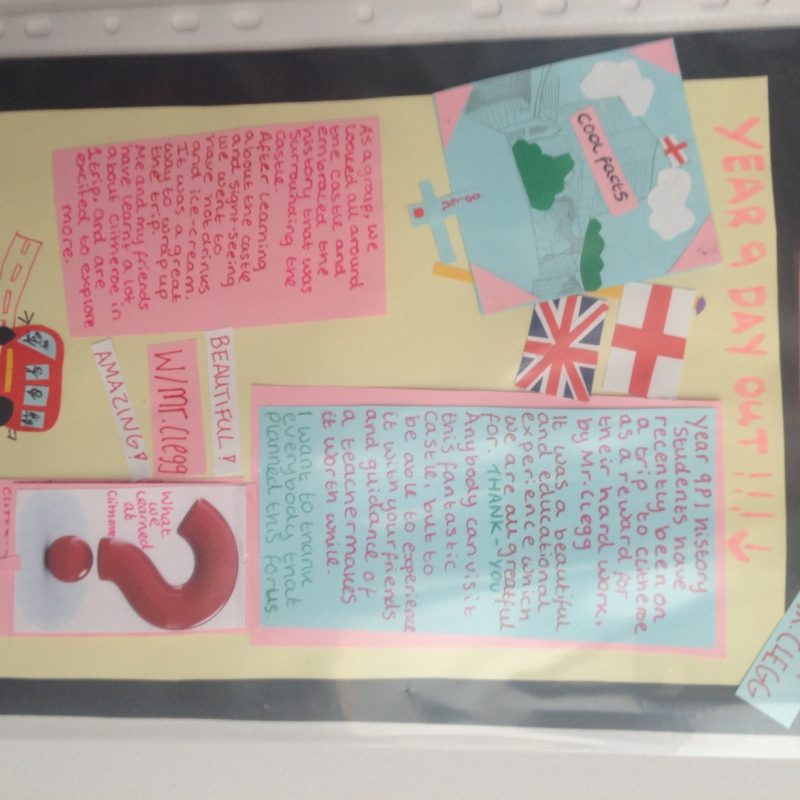 YEAR 9 DAY OUT!!!
COOL FACTS
As a group, we
looked all around
the castle and
embraced the
history that was
surrounding the
castle.
After learning
about the castle
and sight seeing
we went to
have hot drinks
and ice-cream.
It was a great
way to wrap up
the trip.
Me and my friends
have learnt a lot
about Clitheroe in
1 trip, and are
excited to explore
more.
Year 9P1 history
students have
recently been on
a trip to Clitheroe
as a reward for
their hard work,
by Mr.Clegg
It was a beautiful
and educational
experience which
we are all greatful
for. THANK-YOU
Anybody can visit
this fantastic
castle, but to
be able to experience
it with your friends
and guidance of
a teacher makes
it worth while.
I want to thank
everybody that
planned this for us.
BEAUTIFUL!
W/Mr.Clegg
AMAZING!
What
we
learned
at
CLEGG